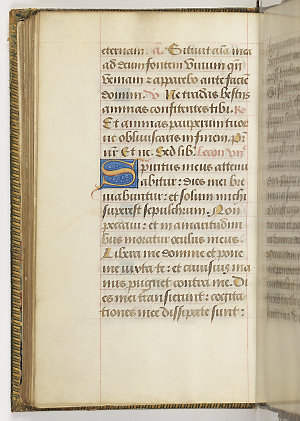 eternam. a. Sitivit aīa mea
ad deum fontem vivum qn̄
veniam ⁊ apparebo ante faciē
domini. v. Ne tradas bestiis
animas confitentes tibi. Re
Et animas pauperum tuor
ne obliviscaris in finem. Pr̄
nr̄ Et ne. Sed lib. Lectio vii
Spiritus meus attenu
abitur: dies mei bre
viabuntur: et solum michi
superest sepulchrum. Non
peccavi: et in amaritudini
bus moratur oculus meus.
Libera me domine et pone
me iuxta te: et cuiusvis ma
nus pugnet contra me. Di
es mei transierunt: cogita
tiones mee dissipate sunt: